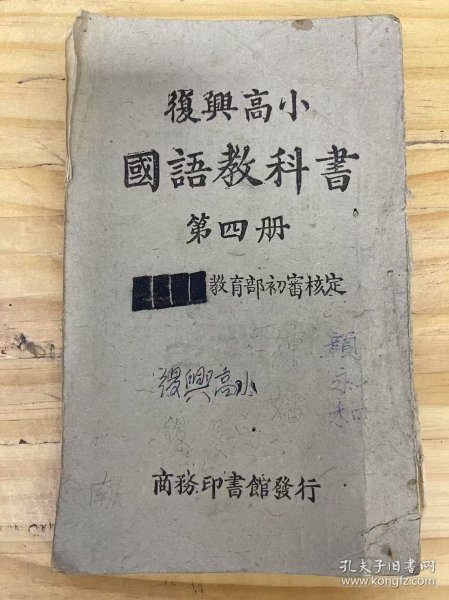 復興高小
國語教科書
第四册
教育部初審核定
復興高小
顧永和
商務印書館發行
孔夫子旧书网
www.kongfz.com